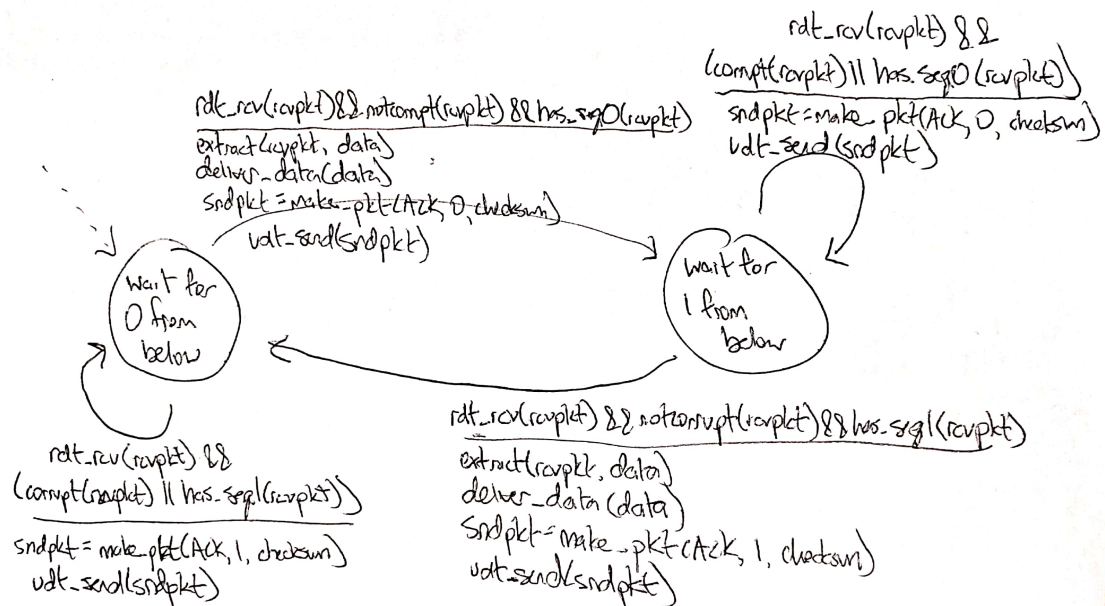 rdt_rcv(rcvpkt) &&
(corrupt(rcvpkt) || has_seq0(rcvpkt))
sndpkt=make_pkt(ACK, 0, checksum)
udt_send(sndpkt)
rdt_rcv(rcvpkt)&&notcorrupt(rcvpkt) && has_seq0(rcvpkt)
extract(rcvpkt, data)
deliver_data(data)
sndpkt=make_pkt(ACK, 0, checksum)
udt_send(sndpkt)
wait for
0 from
below
wait for
1 from
below
rdt_rcv(rcvpkt) &&
(corrupt(rcvpkt) || has_seq1(rcvpkt))
sndpkt = make_pkt(ACK, 1, checksum)
udt_send(sndpkt)
rdt_rcv(rcvpkt) && notcorrupt(rcvpkt)&& has_seq1(rcvpkt)
extract(rcvpkt, data)
deliver_data(data)
sndpkt=make_pkt(ACK, 1, checksum)
udt_send(sndpkt)